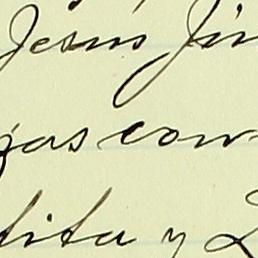 Jesus Jim
gas con
tita y L